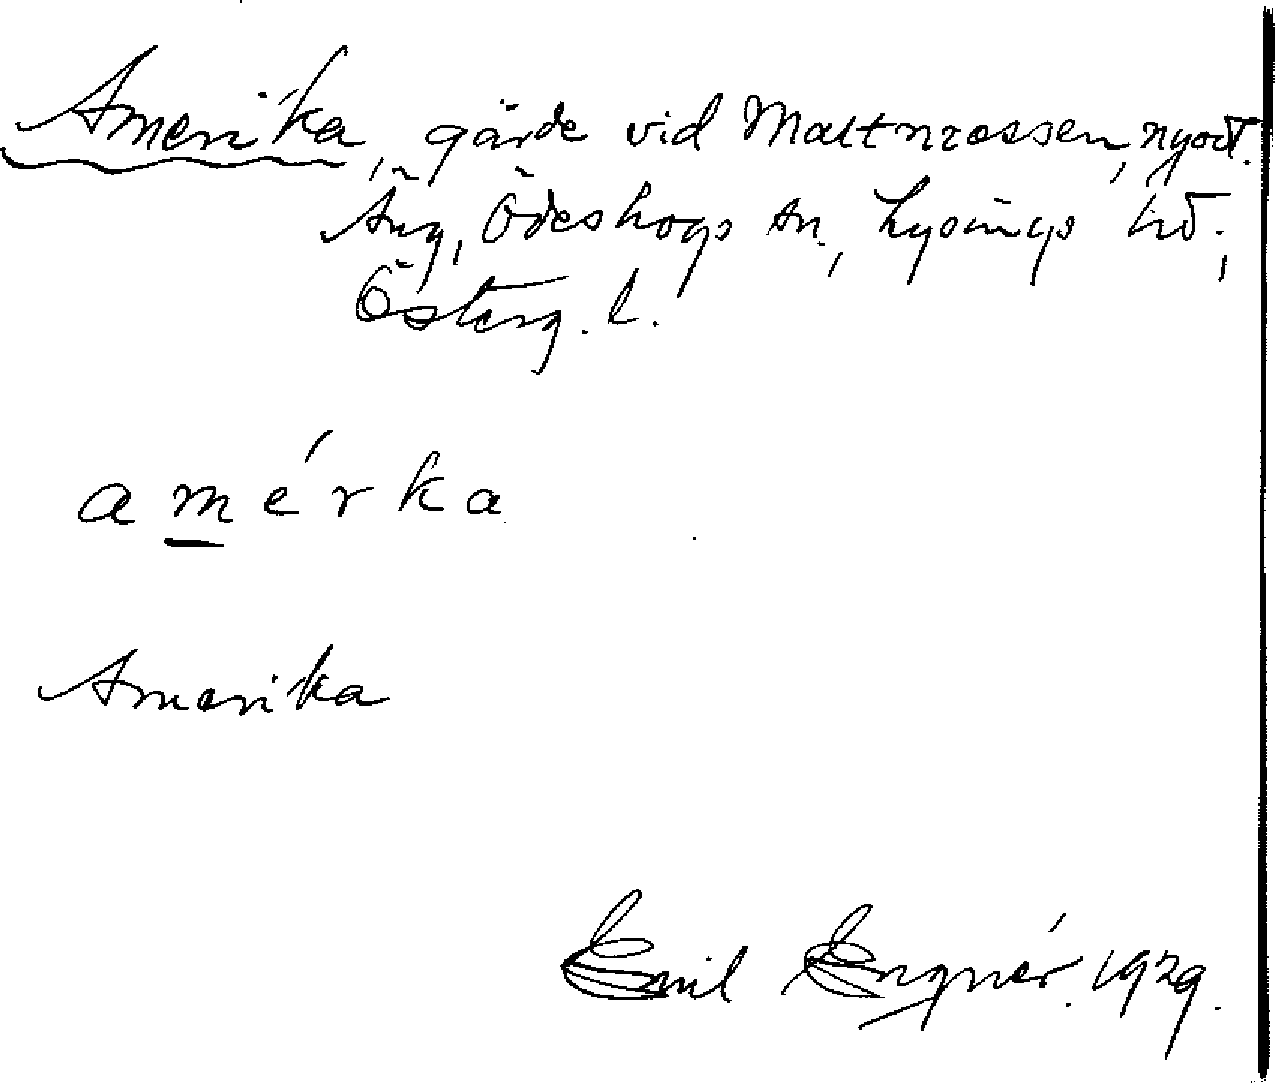 Amerika, gärde vid Maltmossen, nyodl.
Äng, Ödeshögs sn., Lysings hd.,
Österg. l.
amérka
Amerika
Emil Engnér. 1929.